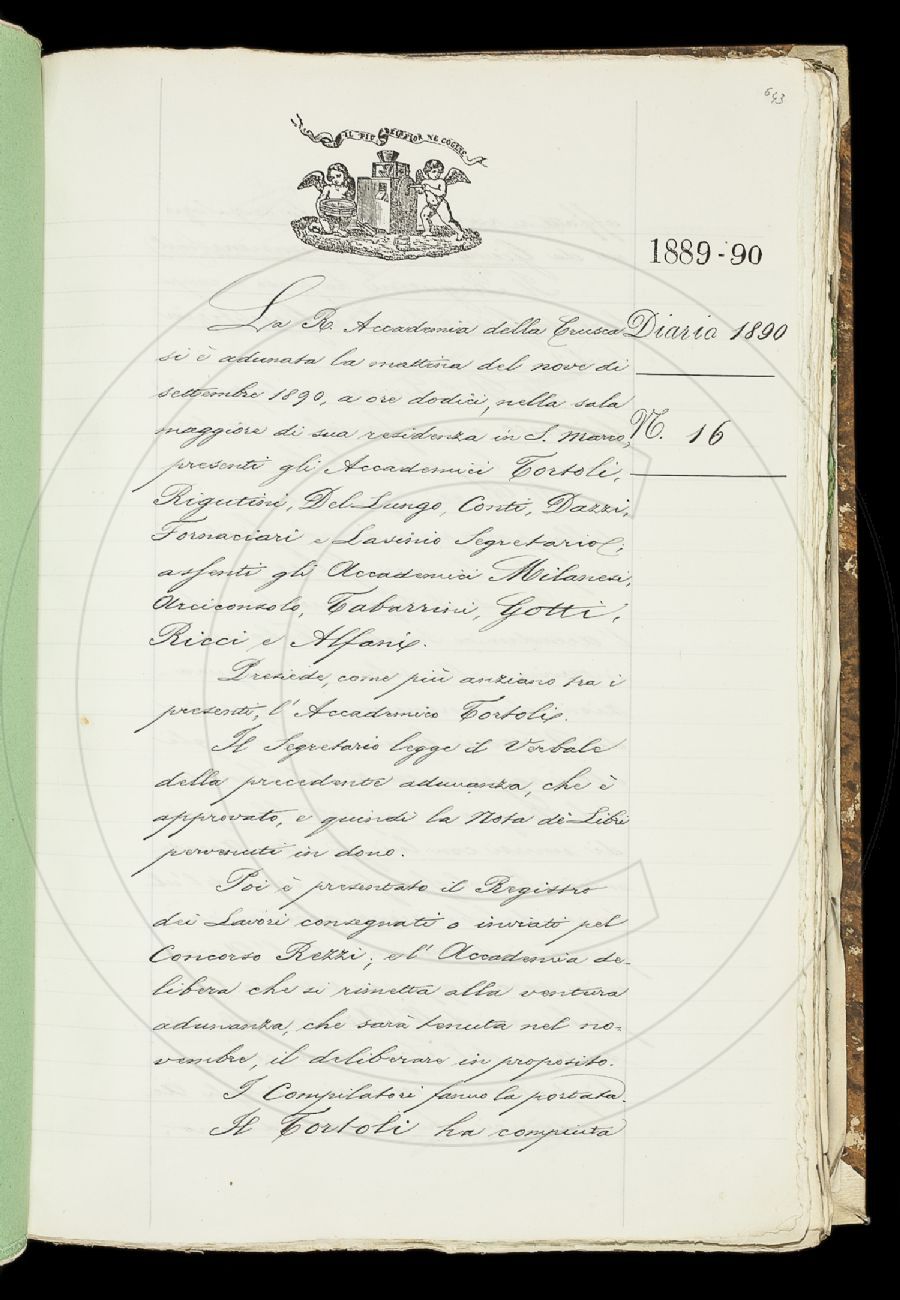 643
IL PIÙ BEL FIOR NE COGLIE
1889-90
La R. Accademia della Crusca
Diario 1890
si è adunata la mattina del nove di
settembre 1890, a ore dodici, nella sala
maggiore di sua residenza in S. Marco,
N. 16
presenti gli Accademici Tortoli,
Rigutini, Del Lungo, Conti, Dazzi,
Fornaciari e Lavinio Segretario;
assenti gli Accademici Milanesi,
Arciconsolo, Tabarrini, Gotti,
Ricci e Alfani.
Presiede, come più anziano tra i
presenti, l'Accademico Tortoli.
Il Segretario legge il Verbale
della precedente adunanza, che è
approvato, e quindi la Nota de' Libri
pervenuti in dono.
Poi è presentato il Registro
dei Lavori consegnati o inviati pel
Concorso Rezzi; e l'Accademia de-
libera che si rimetta alla ventura
adunanza, che sarà tenuta nel no-
vembre, il deliberare in proposito.
I Compilatori fanno la portata.
Il Tortoli ha compiuta